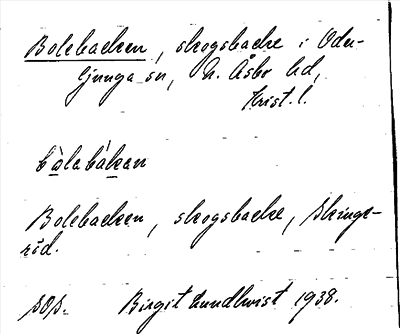 Bolebacken, skogsbacke i Oder-
ljunga sn, N. Åsbo hd,
Krist. l.
bòlabàkan
Bolebacken, skogsbacke, Skinge-
röd.
Birgit Lundkvist 1938.